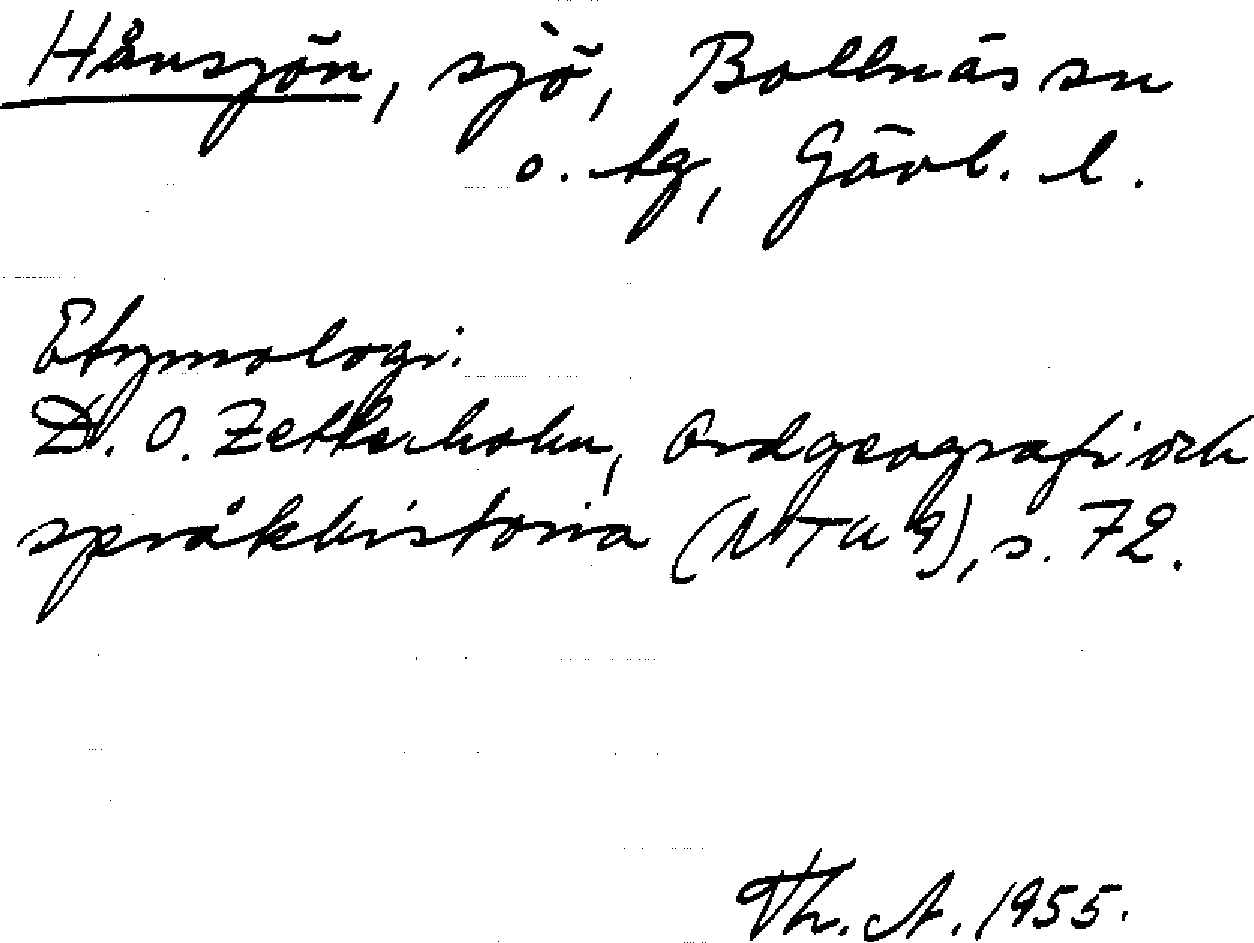 Hånsjön, sjö, Bollnäs sn
o. tg, Gävl. l.
Etymologi:
D. O. Zetterholm, Ordgeografi och
språkhistoria (NTU 9), s. 72.
Th. A. 1955.